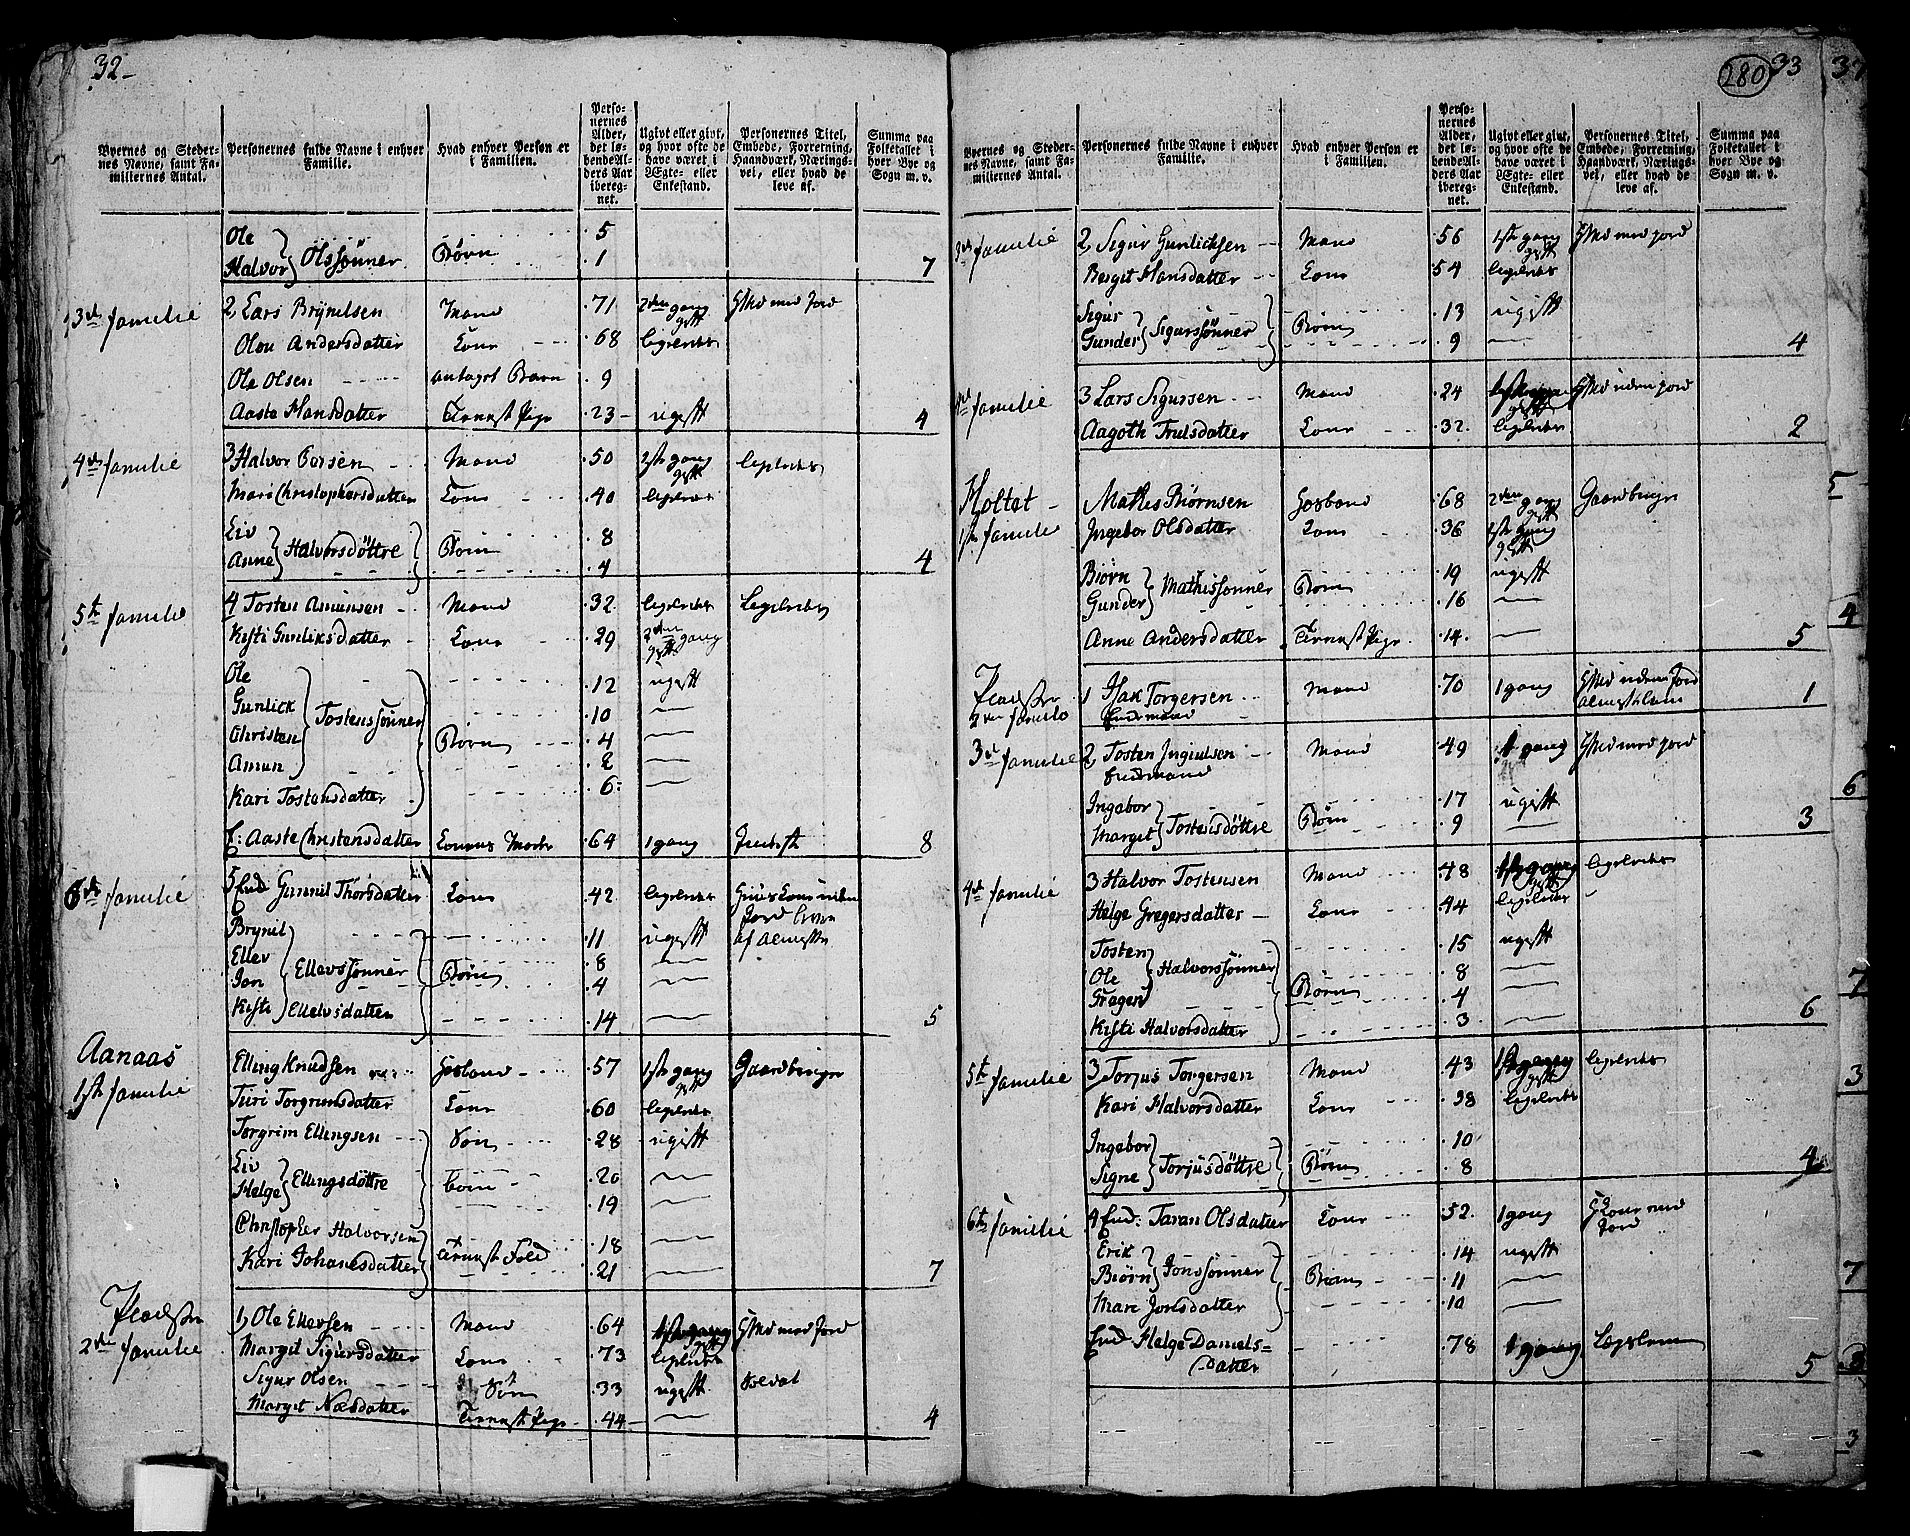 32
Byernes og Stedernes Navne, samt Familiernes Antal.
Personernes fulde Navne i enhver Familie.
Hvad enhver Person er i Familien.
Personernes Alder, det løbende Alders Aar iberegnet.
Ugivt eller givt, og hvor ofte de have været i Ægte- eller Enkestand.
Personernes Titel, Embede, Forretning, Haandværk, Næringsvei, eller hvad de leve af.
Summa paa Folketallet i hver Bye og Sogn m. v.
Ole } Olssønner Børn 5
Halvor 1 7
3de familie 2 Lars Brynilsen Mand 71 2den gang gift Hmd med Jord
Olou Andersdatter Kone 68 ligeledes
Ole Olsen antaget Barn 9
Aaste Hansdatter Tienest Pige 23 ugift 4
4de familie 3 Halvor Torsen Mand 50 1ste gang gift ligeledes
Mari Christophersdatter Kone 40 ligeledes
Liv } Halvorsdøttre Børn 8
Anne 4 4
5te familie 4 Tosten Amunsen Mand 32 ligeledes Ligeledes
Kisti Gunliksdatter Kone 29 2den gang gift
Ole 12 ugift
Gunlick } Tostenssønner 10
Christen Børn 4
Amun 2
Kari Tostensdatter 6
E: Aaste Christensdatter Konens Moder 64 1 gang 8
6te familie 5 Enk Gunnil Thorsdatter Kone 42 ligeledes
Brynil 11 ugift af Almisse
Ellev } Ellevssønner Børn 8
Jon 4
Kisti Ellevsdatter 14 5
Aanaas
1ste familie Elling Knudsen Hosbond 57 1ste gang gift Gaardbruger
Turi Torgrimsdatter Kone 60 ligeledes
Torgrim Ellingsen Søn 28 ugift
Liv } Ellingsdøttre Børn 20
Helge 19
Christopher Halvorsen Tienest Folk 18
Kari Johanesdatter 21 7
Pladser
2den familie 1, Ole Ellevsen Mand 64 1ste gang gift Hmd med Jord
Margit Sigursdatter Kone 73 ligeledes
Sigur Olsen Søn 33 ugift Soldat
Margit Næsdatter Tienest Pige 44 4
280 33
Byernes og Stedernes Navne, samt Familiernes Antal.
Personernes fulde Navne i enhver Familie.
Hvad enhver Person er i Familien.
Personernes Alder, det løbende Alders Aar iberegnet.
Ugivt eller givt, og hvor ofte de have været i Ægte- eller Enkestand.
Personernes Titel, Embede, Forretning, Haandværk, Næringsvei, eller hvad de leve af.
Summa paa Folketallet i hver Bye og Sogn m. v.
3de familie 2, Sigur Gunlichsen Mand 56 1ste gang gift Hmd med jord
Berget Hansdatter Kone 54 ligeledes
Sigur } Sigurssønner Børn 13 ugift
Gunder 9 4
4de familie 3 Lars Sigursen Mand 24 1ste gang gift Hmd uden jord
Aagoth Trulsdatter Kone 32 ligeledes 2
Holtet
1ste familie Mathis Biørnsen Hosbond 68 2den gang gift Gaardbruger
Ingebor Olsdatter Kone 36 1ste gang gift
Biørn } Mathissønner Børn 19 ugift
Gunder 16
Anne Andersdatter Tienest Pige 14 5
Pladser
2den familie 1 Isak Torgersen Enkemand Mand 70 1 gang Hmd uden Jord 1
3de familie 2, Tosten Ingiulsen Enkemand Mand 49 1 gang Hmd med jord
Ingebor } Tostensdøttre Børn 17 ugift
Margit 9 3
4de familie 3 Halvor Tostensen Mand 48 1ste gang gift ligeledes
Helge Gregersdatter Kone 44 ligeledes
Tosten 15 ugift
Ole } Halvorssønner Børn 8
Gregers 4
Kisti Halvorsdatter 3 6
5te familie 3 Torjus Torgersen Mand 43 1ste gang gift ligeledes
Kari Halvorsdatter Kone 38 ligeledes
Ingebor } Torjusdøttre Børn 10
Signe 8 4
6te familie 4 Enk: Taran Olsdatter Kone 52 1 gang Hkone med Jord
Erik } Jonssønner 14 ugift
Biørn Børn 11
Mari Jonsdatter 10
Enk Helge Danielsdatter 78 1 gang Lægslem 5
37
5
4
6
7
3
7
3